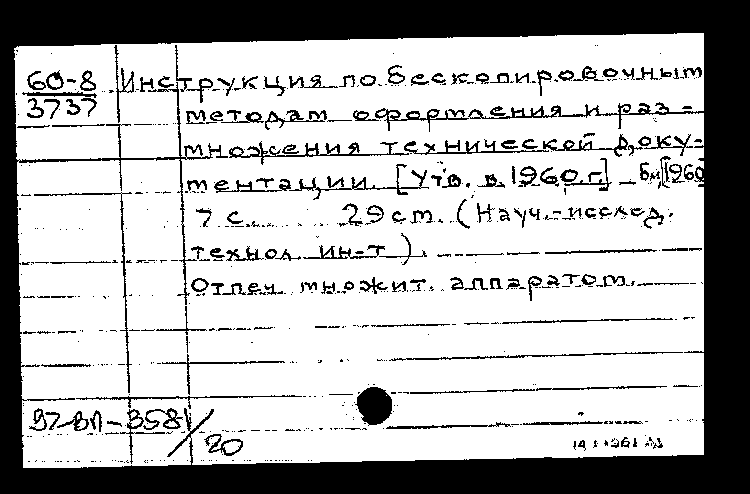 60-8 Инструкция по бескопировочным
3737 методам оформления и раз=
множения технической доку-
ментации. [Утв. в. 1960.г.] Б.м, [1960
7 с. 29 cm. (Науч.-исслед.
технол. ин-т).
Отпеч. множит. аппаратом.
97-ВП-3581/20